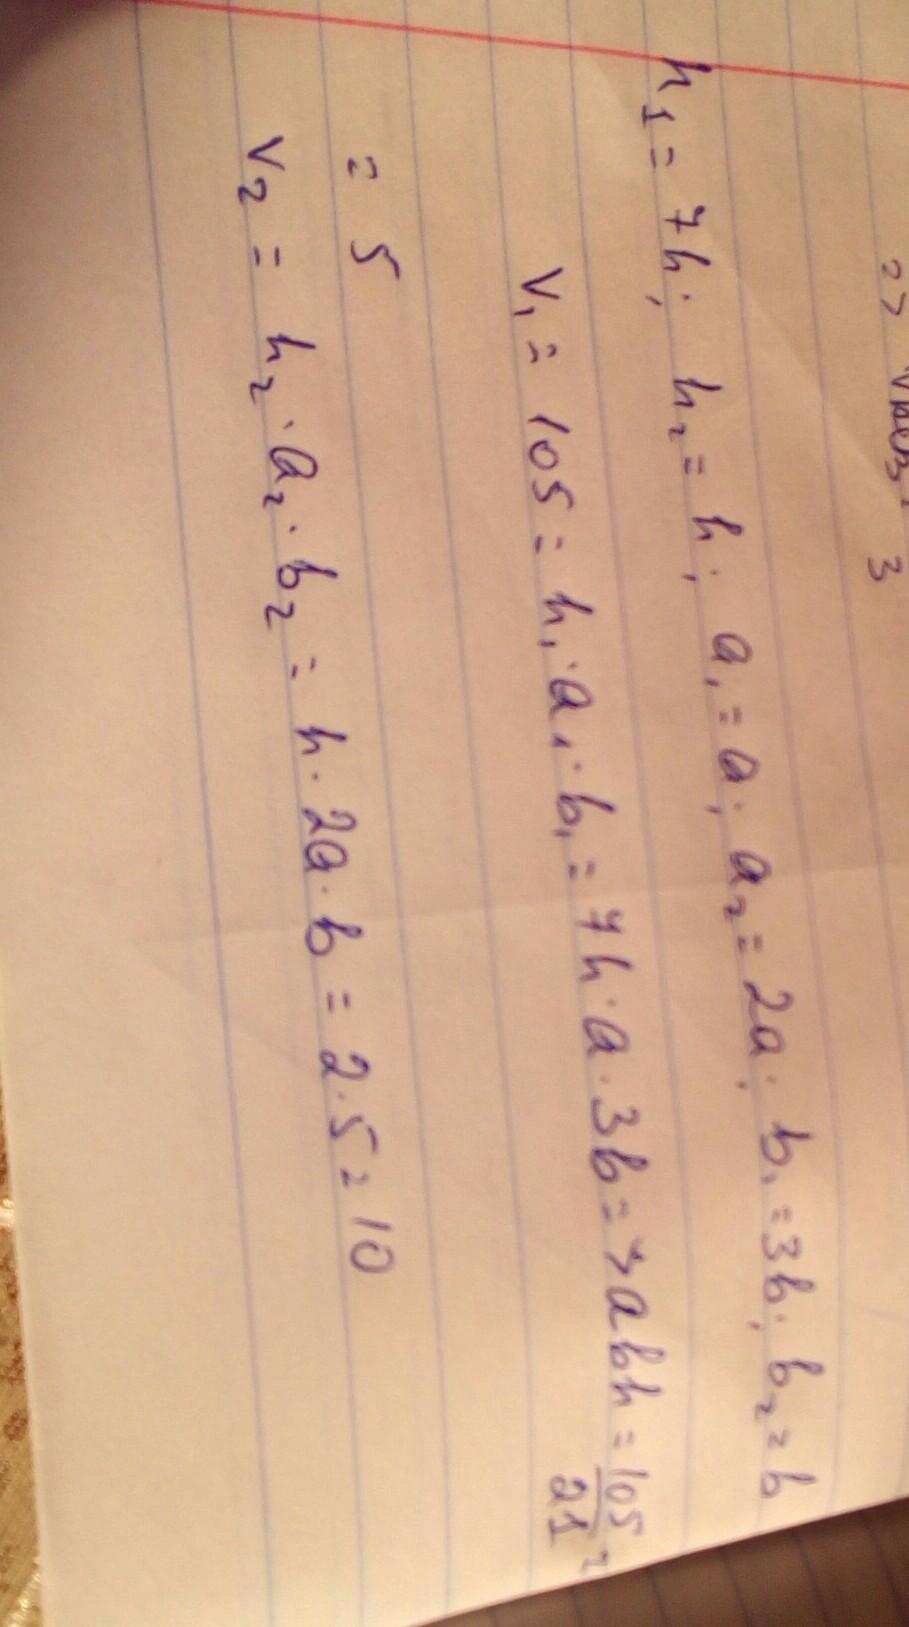 => V
3
h₁ = 7h; h₂ = h; a₁ = a; a₂ = 2a; b₁ = 3b; b₂ = b
V₁ = 105 = h₁ · a₁ · b₁ = 7h · a · 3b => abh = 105/21 =
= 5
V₂ = h₂ · a₂ · b₂ = h · 2a · b = 2 · 5 = 10